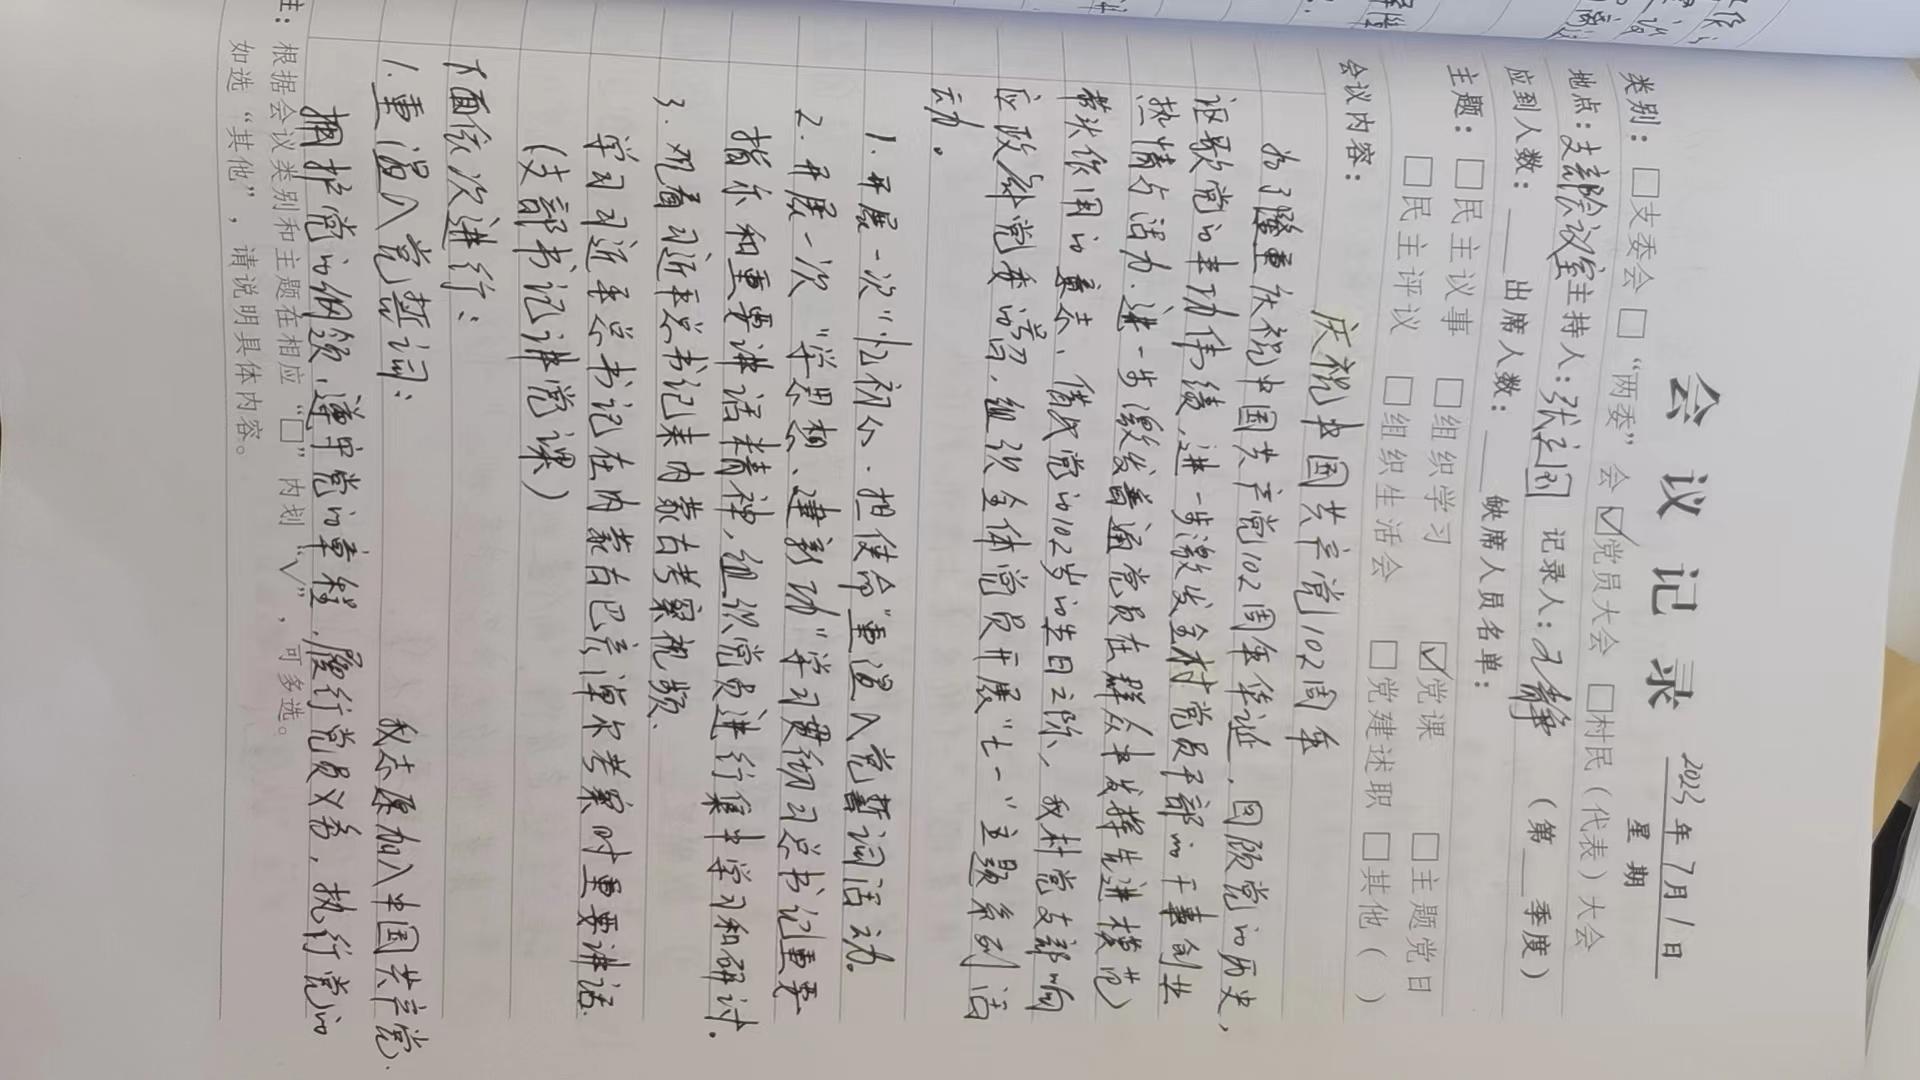 会议记录
2023年7月1日
星期
类别：□支委会 □“两委”会 ☑党员大会 □村民（代表）大会
地点：支部会议室 主持人：张立国 记录人：静 （第 季度）
应到人数： 出席人数： 缺席人员名单：
主题：□民主议事 □组织学习 ☑党课 □主题党日
□民主评议 □组织生活会 □党建述职 □其他（ ）
会议内容：
庆祝中国共产党102周年
为了隆重庆祝中国共产党102周年华诞，回顾党的历史，
讴歌党的丰功伟绩，进一步激发全村党员干部的干事创业
热情与活力，进一步激发普通党员在群众中发挥先进模范
带头作用的，借我党的102岁的生日之际，我村党支部响
应政府党委，组织全体党员开展“七一”主题系列活
动。
1.开展一次“忆初心·担使命”重温入党誓词活动。
2.开展一次“学思想、建新功”学习贯彻习总书记重要
指示和重要讲话精神，组织党员进行集中学习和研讨。
3.观看习近平总书记来内蒙古考察视频.
学习习近平总书记在内蒙古巴彦淖尔考察时重要讲话.
（支部书记讲党课）
下面依次进行：
1.重温入党誓词： 我志愿加入中国共产党.
拥护党的纲领，遵守党的章程，履行党员义务，执行党的
注：根据会议类别和主题在相应“□”内划“√”，可多选。
如选“其他”，请说明具体内容。